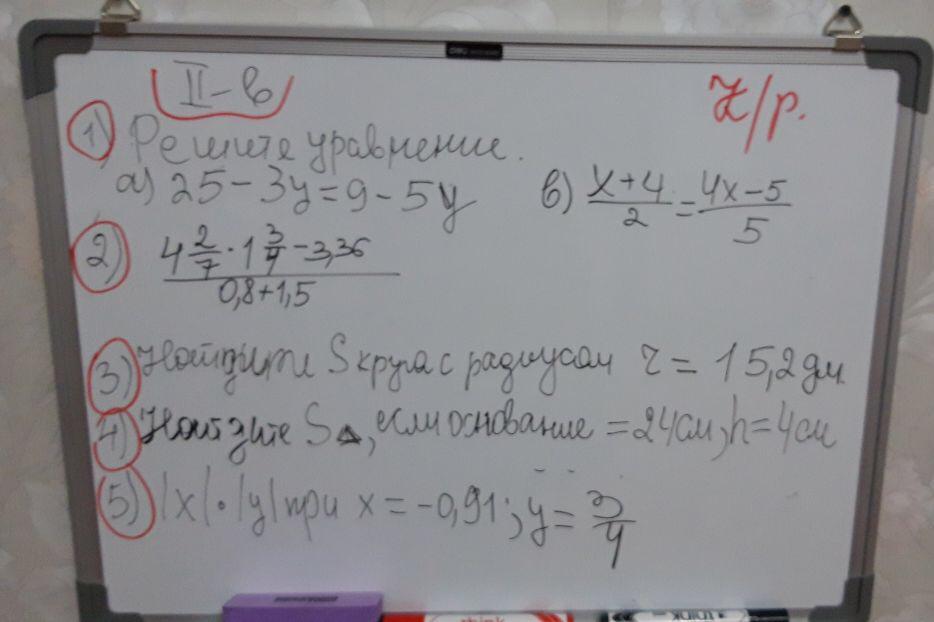 II-в
К/р.
1) Решите уравнение.
а) 25-3y=9-5y в) x+4/2=4x-5/5
2) 4 2/7·1 3/4-3,36/0,8+1,5
3) Найдите S круга с радиусом r=15,2дм
4) Найдите S△, если основание =24см, h=4см
5) |x|·|y| при x=-0,91; y=3/4
think
think